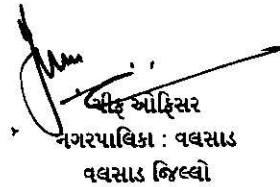 ચીફ ઓફિસર
નગરપાલિકા : વલસાડ
વલસાડ જિલ્લો